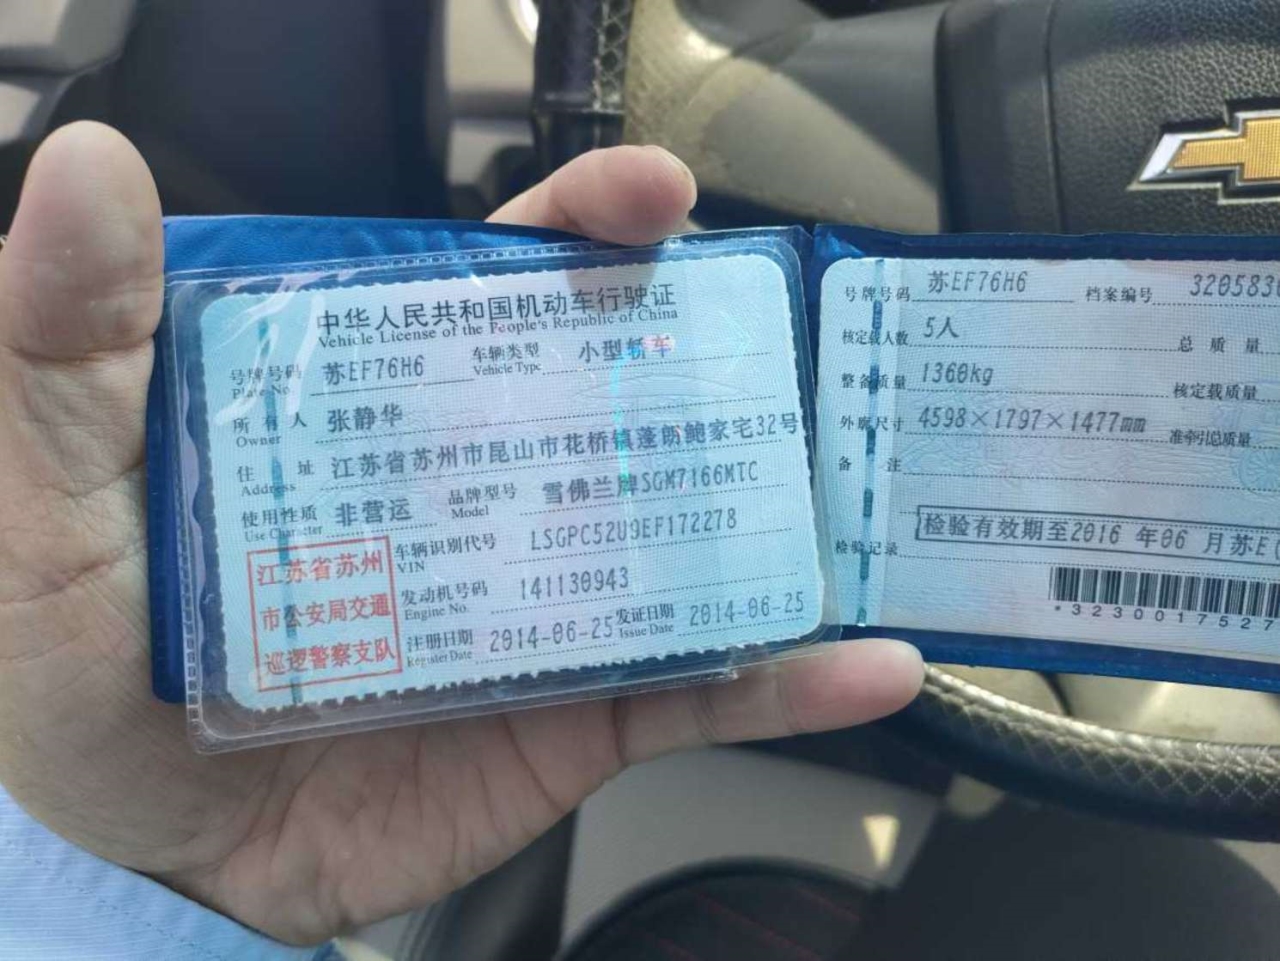 中华人民共和国机动车行驶证
Vehicle License of the People's Republic of China
号牌号码 苏EF76H6 车辆类型 小型轿车
Plate No. Vehicle Type
所有人 张静华
Owner
住址 江苏省苏州市昆山市花桥镇蓬朗鲍家宅32号
Address
使用性质 非营运 品牌型号 雪佛兰牌SGM7166MTC
Use Character Model
江苏省苏州
市公安局交通
巡逻警察支队
车辆识别代号 LSGPC52U9EF172278
VIN
发动机号码 141130943
Engine No.
注册日期 2014-06-25 发证日期 2014-06-25
Register Date Issue Date
号牌号码 苏EF76H6 档案编号 320583
核定载人数 5人 总质量
整备质量 1360kg 核定载质量
外廓尺寸 4598×1797×1477mm 准牵引总质量
备注
检验有效期至2016 年06 月苏E
检验记录
*3230017527